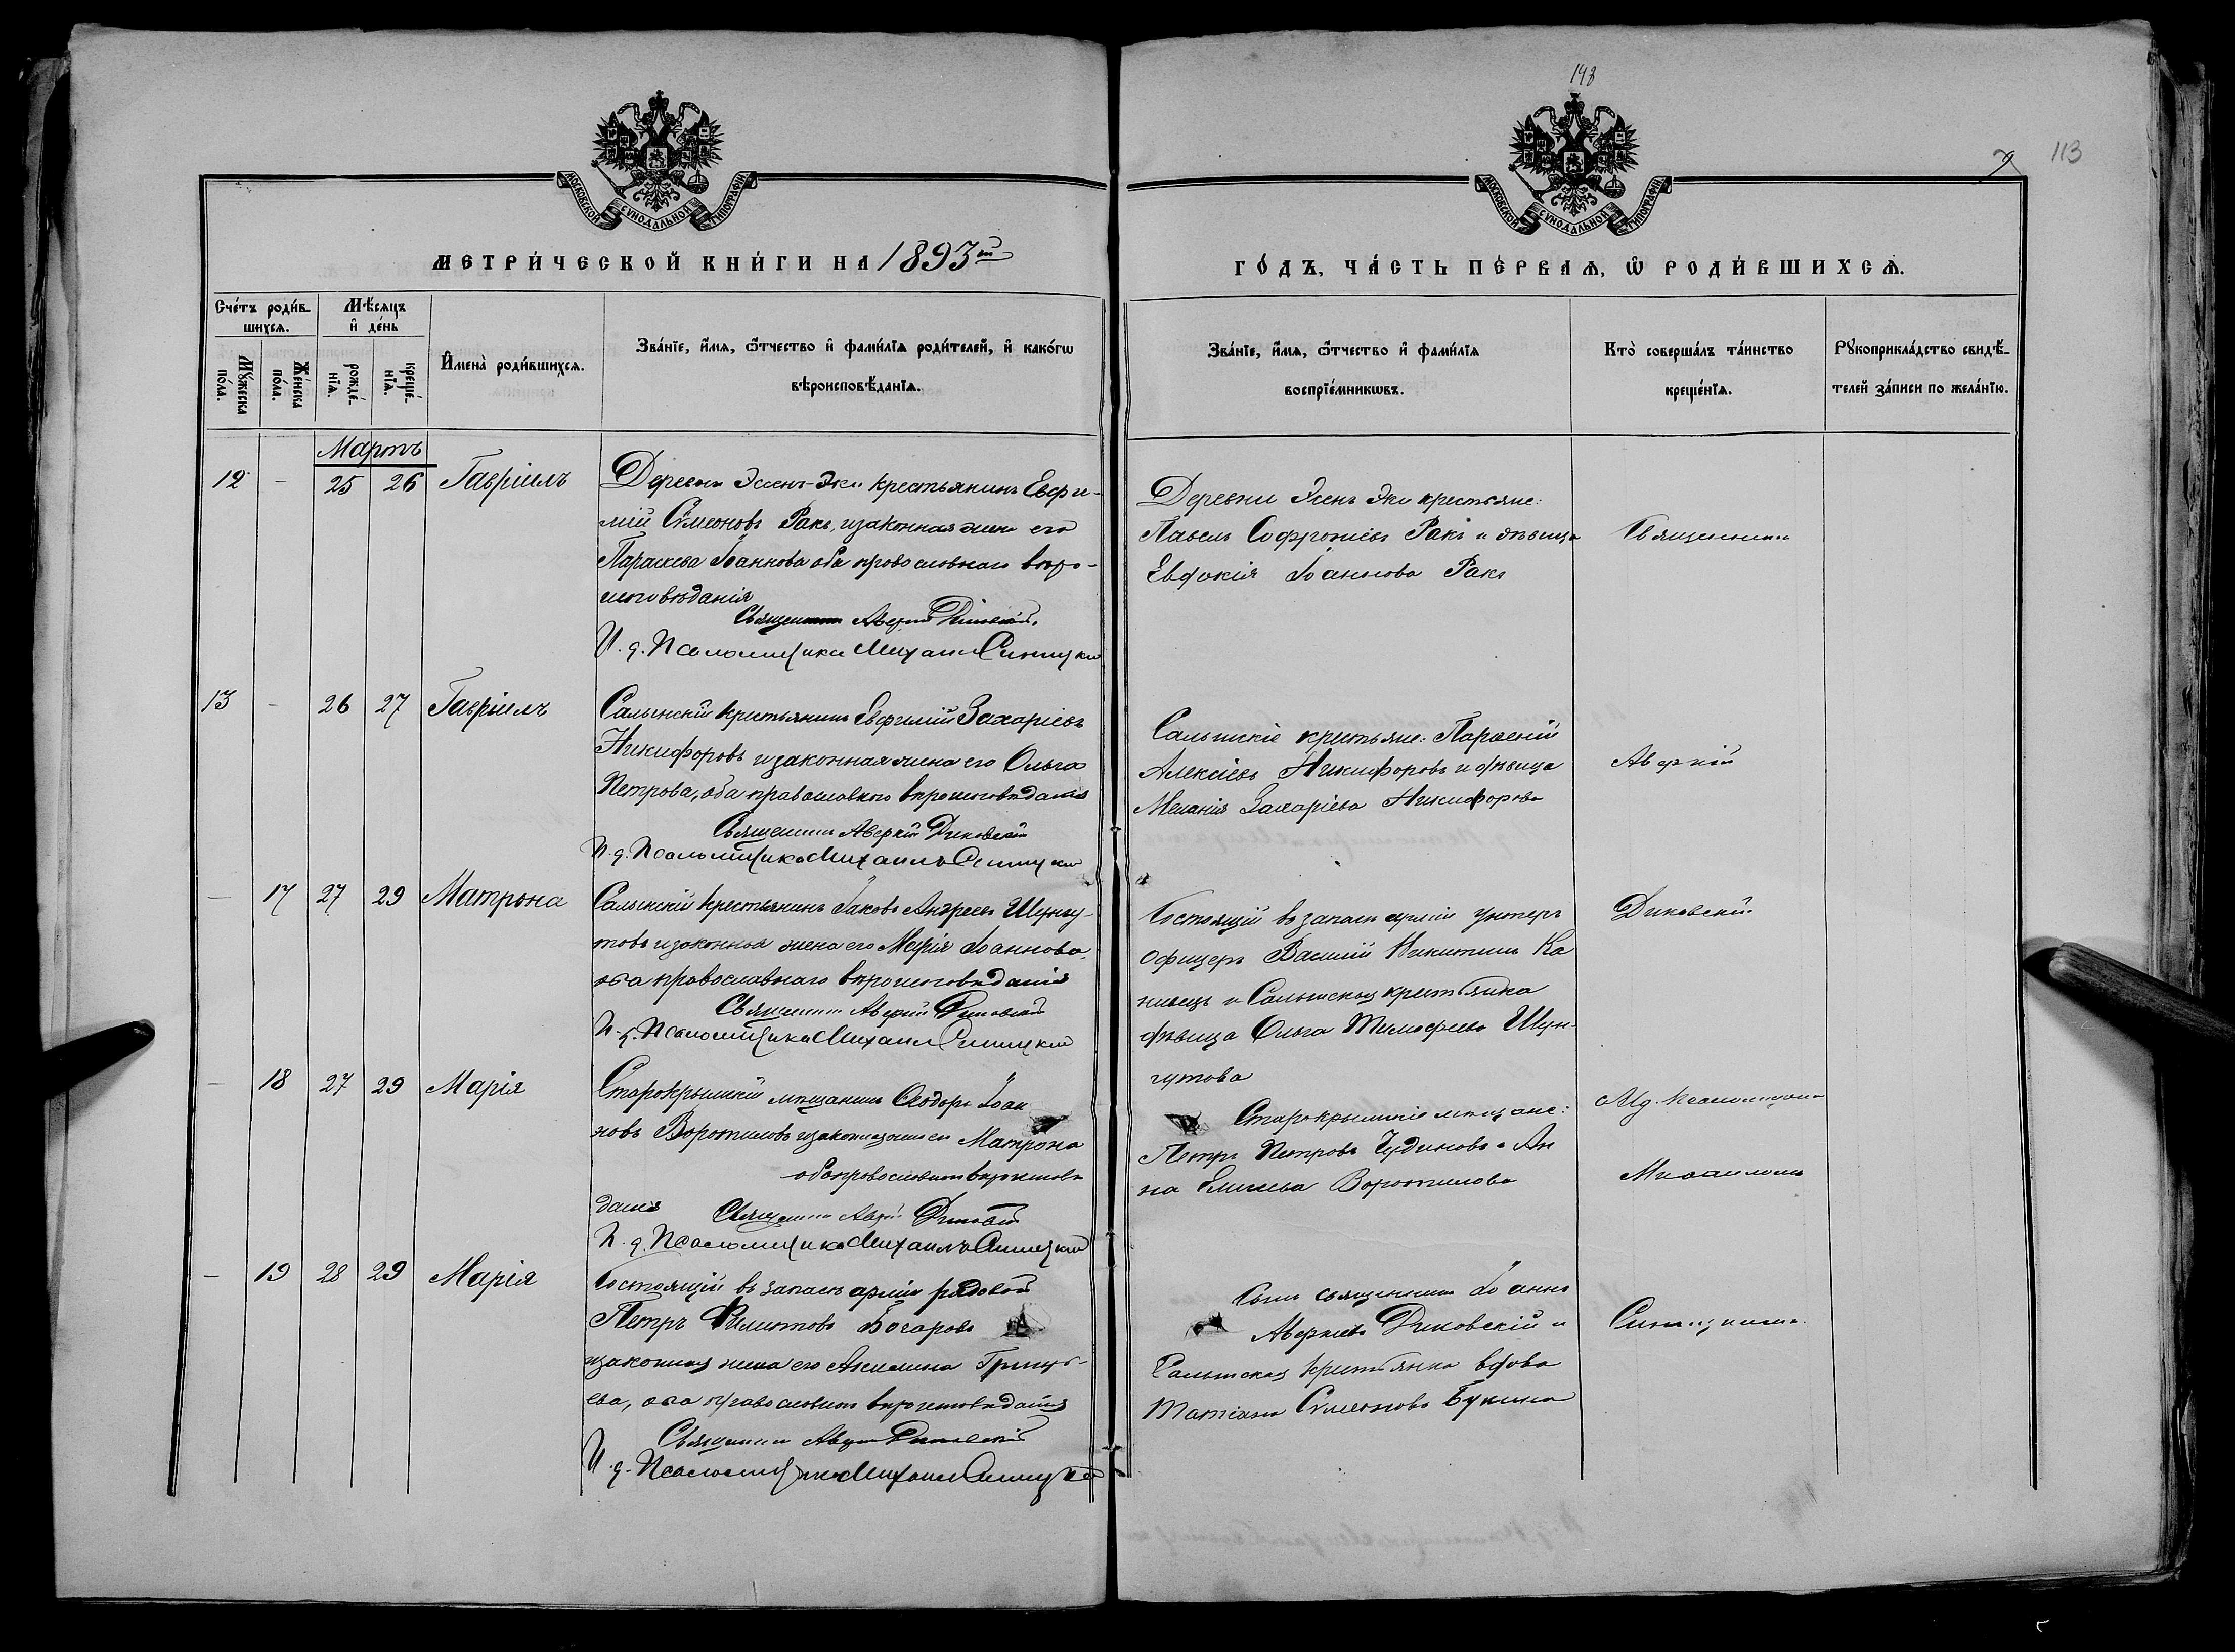 148
113
МОСКОВСКОЙ СѴНОДАЛЬНОЙ ТИПОГРАФІИ
МОСКОВСКОЙ СѴНОДАЛЬНОЙ ТИПОГРАФІИ
МЕТРИ́ЧЕСКОЙ КНИ́ГИ НА 1893й
ГО́ДЪ, ЧА́СТЬ ПЕ́РВАѦ, Ѡ҆ РОДИ́ВШИХСѦ.
Сче́тъ роди́в-
шихсѧ.
Мꙋ́жеска по́ла.
Же́нска по́ла.
Мѣ́сѧцъ
и҆ де́нь
рожде́-нїѧ.
креще́-нїѧ.
И҆мена̀ роди́вшихсѧ.
Зва́нїе, и҆́мѧ, ѻ҆́тчество и҆ фами́лїѧ роди́телей, и҆ како́гѡ
вѣроисповѣ́данїѧ.
Зва́нїе, и҆́мѧ, ѻ҆́тчество и҆ фами́лїѧ
воспрїе́мникѡвъ.
Кто̀ соверша́лъ та́инство
креще́нїѧ.
Рꙋкоприкла́дство свидѣ́-
телей за́писи по жела́нїю.
Мартъ
12 - 25 26 Гавріилъ
Деревни Эсенъ-Эки крестьянинъ Евфи-
мій Сѵмеоновъ Ракъ, и законная жена его
Параскева Іоаннова оба православнаго веро-
исповѣданія
Священникъ Аверкій Диковскій.
И. д. Псаломщика Михаилъ Синицкій
Деревни Эсенъ Эки крестьяне:
Павелъ Софроніевъ Ракъ и дѣвица
Евдокія Іоаннова Ракъ
Священникъ
13 - 26 27 Гавріилъ
Салынскій крестьянинъ Евфимій Захаріевъ
Никифоровъ и законная жена его Ольга
Петрова, оба православнаго вѣроисповѣданія
Священникъ Аверкій Диковскій
И. д. Псаломщика Михаилъ Синицкій
Салынскіе крестьяне: Парѳеній
Алексіевъ Никифоровъ и дѣвица
Меланія Захаріева Никифорова
Аверкій
- 17 27 29 Матрона
Салынскій крестьянинъ Іаковъ Андреевъ Шунгу-
товъ и законная жена его Марія Іоаннова,
оба православнаго вѣроисповѣданія
Священникъ Аверкій Диковскій
И. д. Псаломщика Михаилъ Синицкій
Состоящій въ запасѣ арміи унтеръ
офицеръ Василій Никитинъ Ка
нивецъ и Салынская крестьянка
дѣвица Ольга Тимоѳеева Шун-
гутова
Диковскій
- 18 27 29 Марія
Старокрымскій мѣщанинъ Ѳеодоръ Іоан
новъ Воротиловъ и законная жена его Матрона
оба православнаго вѣроисповѣ
данія Священникъ Аверкій Диковскій
И. д. Псаломщика Михаилъ Синицкій
Старокрымскіе мѣщане:
Петръ Петровъ Чудиновъ и Ан
на Елисеева Воротилова
И. д. Псаломщика
Михаиломъ
- 19 28 29 Марія
Состоящій въ запасѣ арміи рядовой
Петръ Филиповъ Бочаровъ
и законная жена его Акилина Григорь-
ева, оба православнаго вѣроисповѣданія
Священникъ Аверкій Диковскій
И. д. Псаломщика Михаилъ Синицкій
Сынъ священника Іоаннъ
Аверкіевъ Диковскій и
Салынская крестьянка вдова
Татіана Сѵмеонова Букина
Синицкимъ.